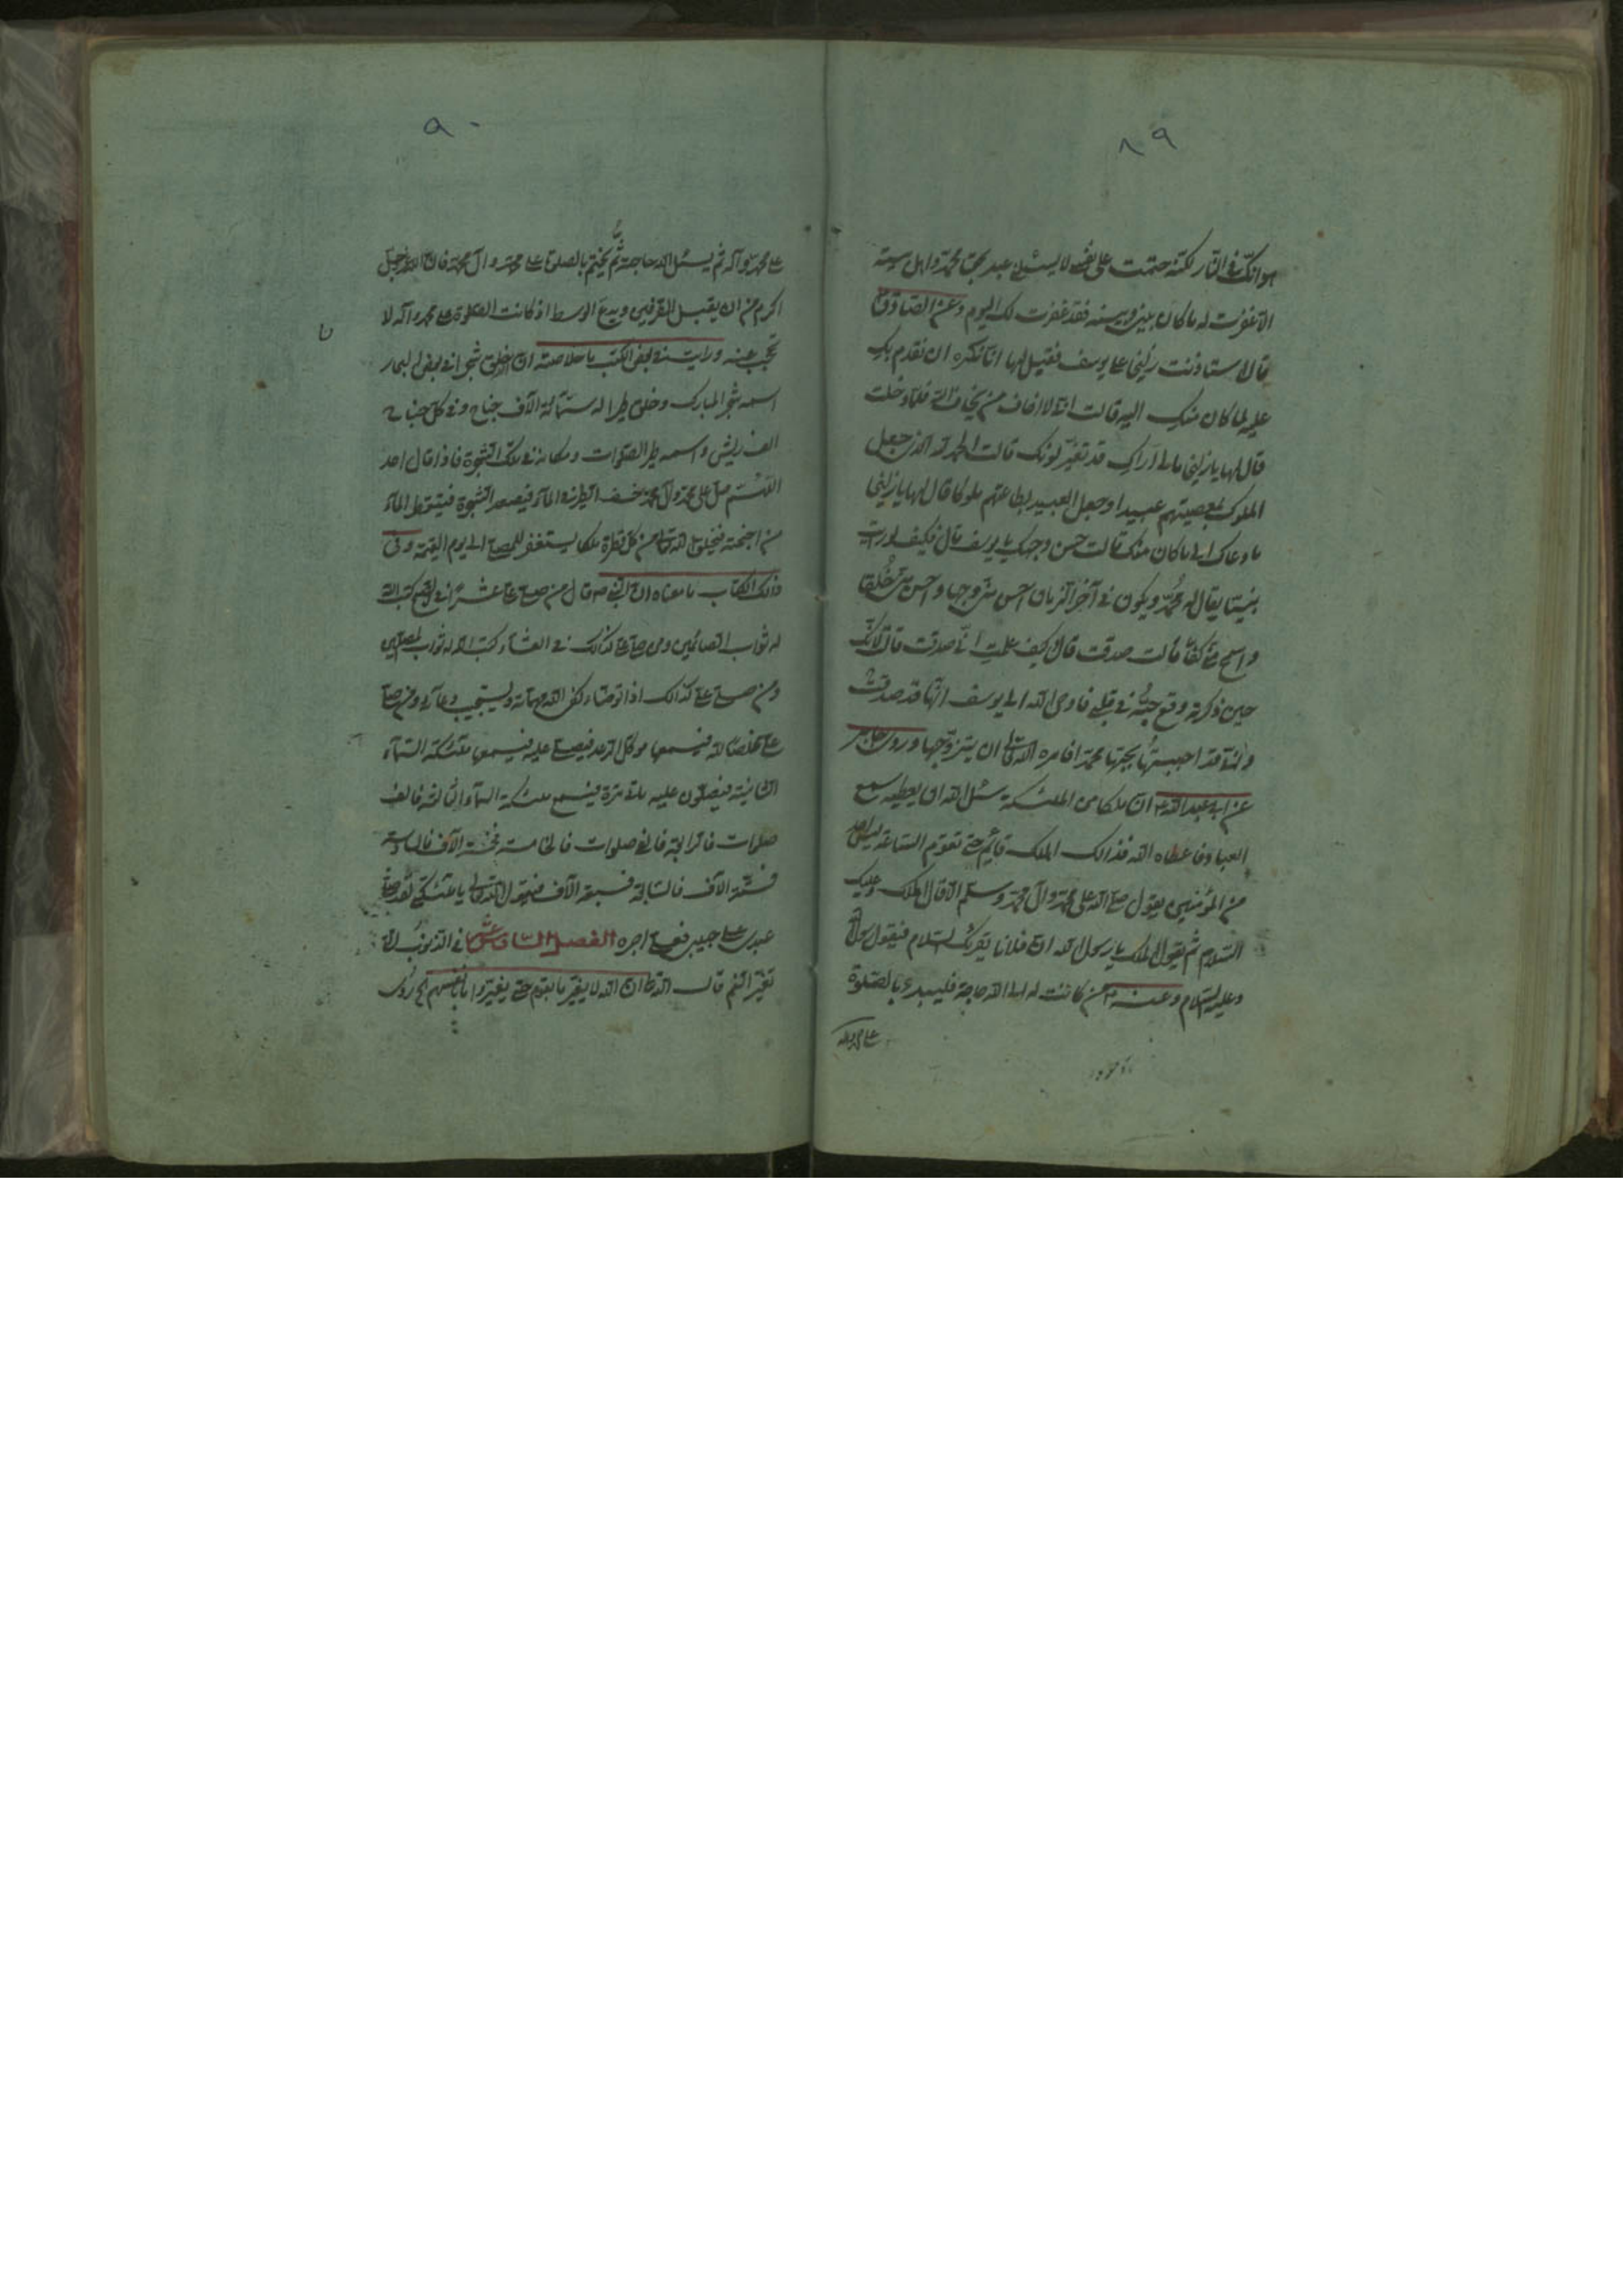 ٨٩
هوانك في النار لكنه حتمت على نفسي لا يسئلني عبد بحق محمد واهل بيته
الا غفرت له ما كان بيني وبينه فقد غفرت لك اليوم وعن الصادق ع
قال استاذنت زليخا على يوسف فقيل لها انا نكره ان نقدم بك
عليه لما كان منك اليه قالت اني لا اخاف من يخاف الله فلما دخلت
قال لها يا زليخا مالي اراك قد تغير لونك قالت الحمد لله الذي جعل
الملوك بمعصيتهم عبيدا وجعل العبيد بطاعتهم ملوكا قال لها يا زليخا
ما دعاك الى ما كان منك قالت حسن وجهك يا يوسف قال فكيف لو رايت
نبيا يقال له محمد ويكون في آخر الزمان احسن مني وجها واحسن مني خلقا
واسمح مني كفا قالت صدقت قال كيف علمت اني صدقت قالت لانك
حين ذكرته وقع حبه في قلبي فاوحى الله الى يوسف انها قد صدقت
واني قد احببتها بحبها محمدا فامره الله تعالى ان يتزوجها وروى جابر
عن ابي عبد الله ع ان ملكا من الملئكة سئل الله ان يعطيه سمع
العباد فاعطاه الله فذالك الملك قائم حتى تقوم الساعة ليس احد
من المؤمنين يقول صلى الله على محمد وآل محمد وسلم الا قال الملك وعليك
السلام ثم يقول الملك يا رسول الله ان فلانا يقرئك السلام فيقول رسول الله
وعليه السلام وعنه ع من كانت له الى الله حاجة فليبدء بالصلوة
على محمد وآله
٩٠
على محمد وآله ثم يسئل الله حاجته ثم يختم بالصلوة على محمد وآل محمد فان الله عز وجل
اكرم من ان يقبل الطرفين ويدع الوسط اذ كانت الصلوة على محمد وآله لا
تحجب عنه ورايت في بعض الكتب ما خلاصته ان الله خلق شجرا في بعض البحار
اسمه شجر المبارك وخلق طيرا له ستمائة الآف جناح وفي كل جناح
الف ريش واسمه طير الصلوات ومكانه في تلك الشجرة فاذا قال احد
اللهم صل على محمد وآل محمد خسف الطير في الماء فيصعد الشجرة فيتقطر الماء
من اجنحته فيخلق الله تعالى من كل قطرة ملكا يستغفر للمصلي الى يوم القيمة وفي
ذلك الكتاب ما معناه ان النبي ص قال من صلى علي عشرا في الصبح كتب الله
له ثواب الصائمين ومن صلى علي كذالك في العشاء كتب الله له ثواب المصلين
ومن صلى علي كذالك اذا توضاء كفى الله مهماته ويستجيب دعائه ومن صلى
علي مخلصا لله فيسمعها موكل الرعد فيصلي عليه فيسمعها ملئكة السماء
الثانية فيصلون عليه مائة مرة فيسمع ملئكة السماء الثالثة فالف
صلوات فالرابعة فالفي صلوات فالخامسة فخمسة الآف فالسادسة
فستة الآف فالسابعة فسبعة الآف فيقول الله تعالى يا ملئكتي لقد صلى
عبدي على حبيبي فعلي اجره الفصل السادس عشر في الذنوب التي
تغير النعم قال الله تعالى ان الله لا يغير ما بقوم حتى يغيروا ما بانفسهم وروى